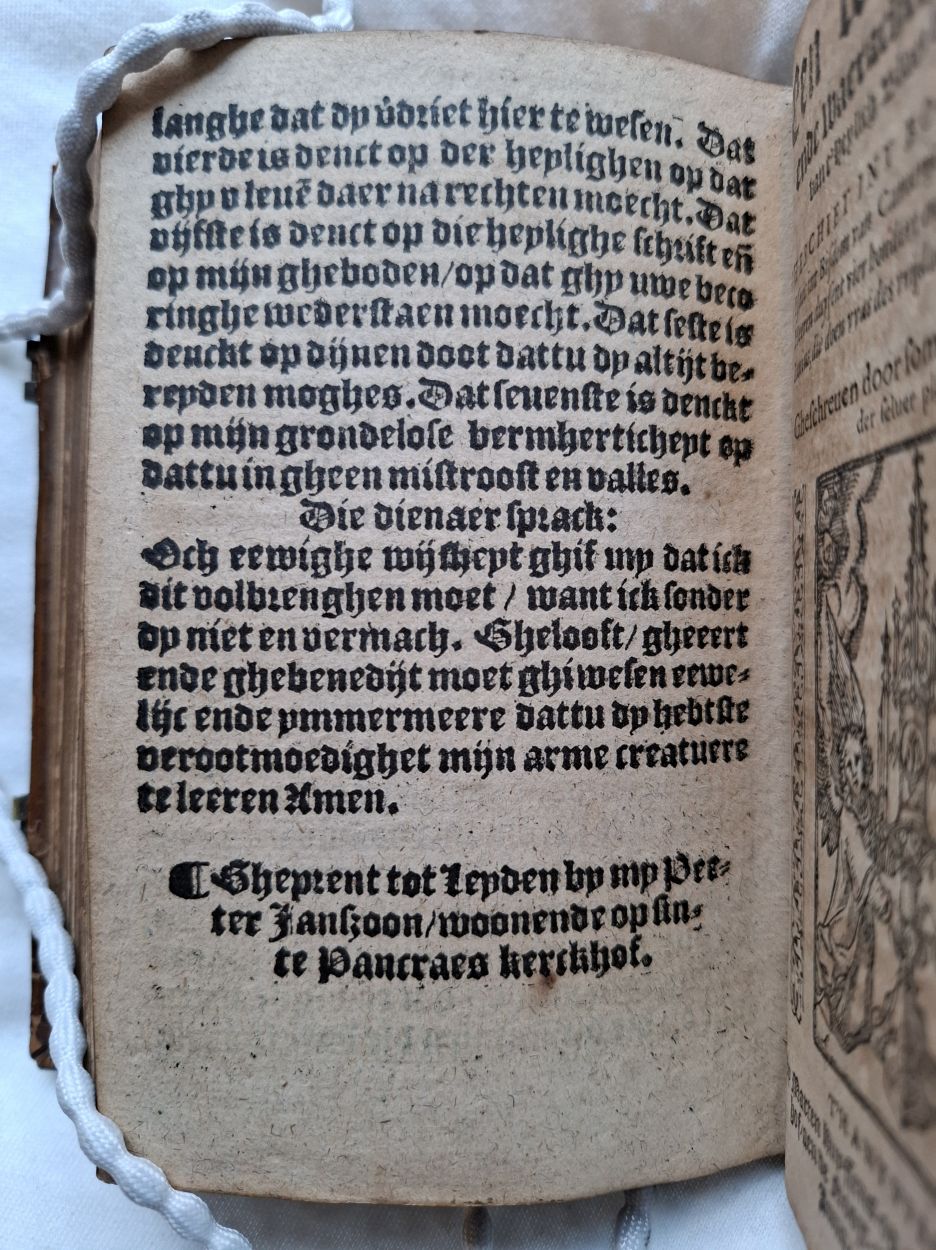 langhe dat dy v̄driet hier te wesen. Dat
vierde is denct op der heylighen op dat
ghy v leuē daer na rechten moecht. Dat
vijfste is denct op die heylighe schrift eñ
op mijn gheboden/op dat ghy uwe beco
ringhe wederstaen moecht. Dat seste is
denckt op dijnen doot dattu dy altijt be⸗
reyden moghes. Dat seuenste is denckt
op mijn grondelose bermherticheyt op
dattu in gheen mistroost en valles.
Die dienaer sprack:
Och eewighe wijsheyt ghif my dat ick
dit volbrenghen moet / want ick sonder
dy niet en vermach. Ghelooft/ gheeert
ende ghebenedijt moet ghi wesen eewe⸗
lijc ende ymmermeere dattu dy hebtste
verootmoedighet mijn arme creatuere
te leeren Amen.
¶ Gheprent tot Leyden by my Pee⸗
ter Janszoon/woonende op sin⸗
te Pancraes kerckhof.
Gheschreuen door
der seluer